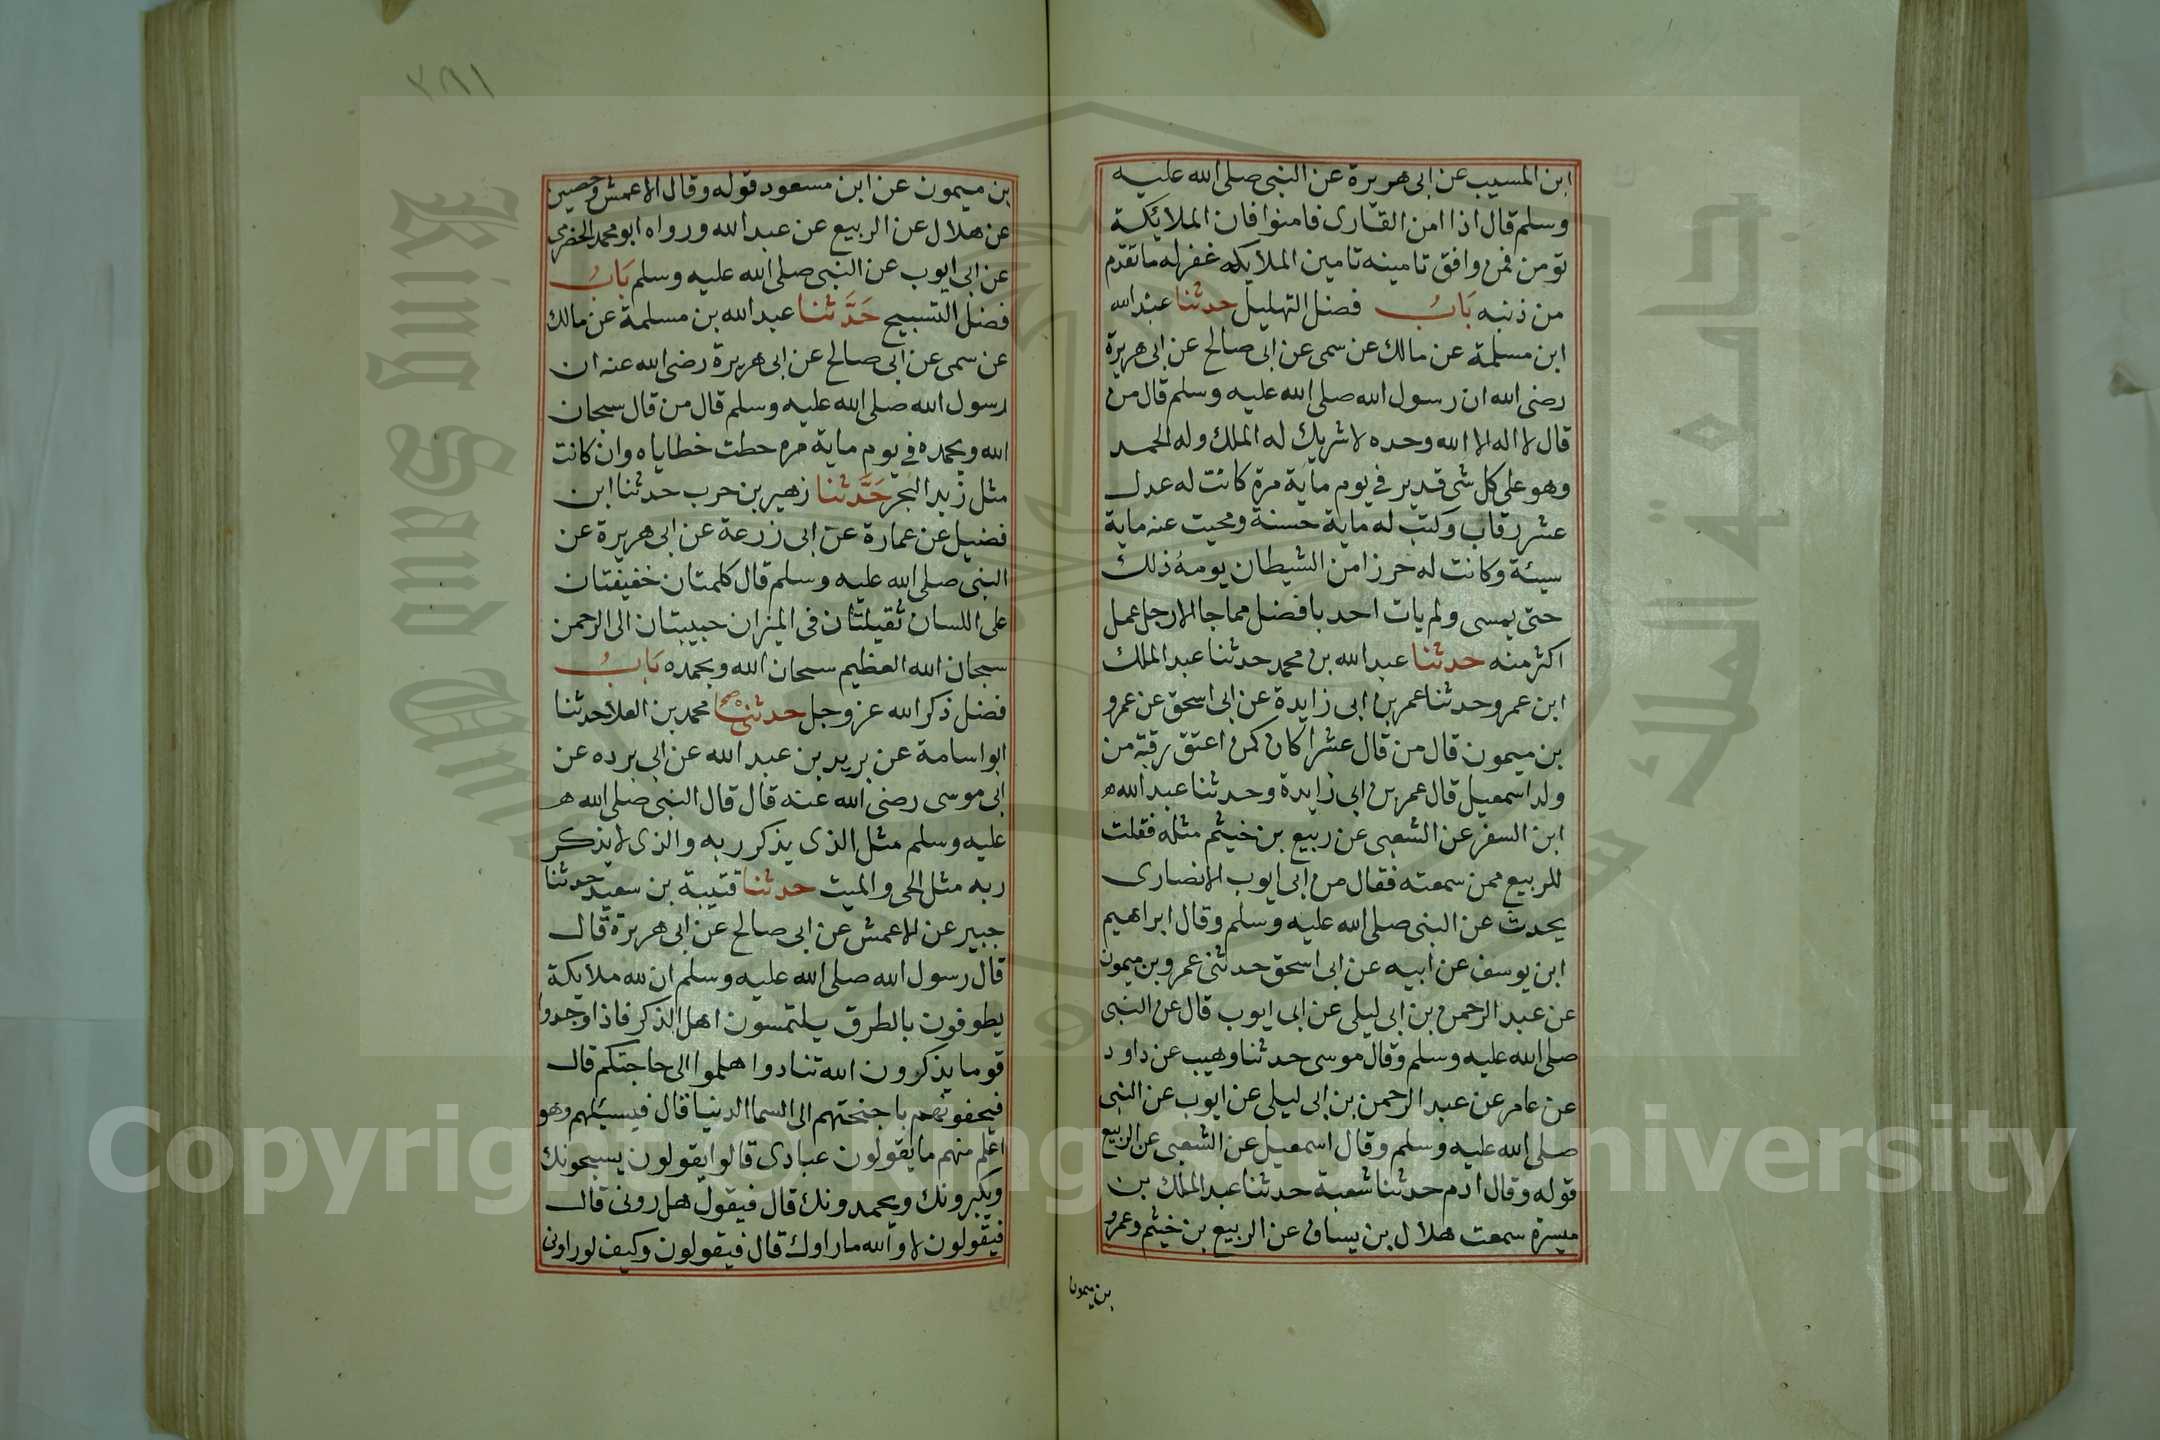 ابن المسيب عن ابى هريرة عن النبى صلى الله عليه
وسلم قال اذا امن القارى فامنوا فان الملائكة
تؤمن فمن وافق تامينه تامين الملايكه غفر له ما تقدم
من ذنبه باب فضل التهليل حدثنا عبد الله
ابن مسلمة عن مالك عن سمى عن ابى صالح عن ابى هريرة
رضى الله ان رسول الله صلى الله عليه وسلم قال من
قال لا اله الا الله وحده لا شريك له الملك وله الحمد
وهو على كل شى قدير فى يوم ماية مرة كانت له عدل
عشر رقاب وكتب له ماية حسنة ومحيت عنه ماية
سيئة وكانت له حرزا من الشيطان يومه ذلك
حتى يمسى ولم يات احد بافضل مما جا الا رجل عمل
اكثر منه حدثنا عبد الله بن محمد حدثنا عبد الملك
ابن عمرو حدثنا عمر بن ابى زايدة عن ابى اسحق عن عمرو
بن ميمون قال من قال عشرا كان كمن اعتق رقبة من
ولد اسمعيل قال عمر بن ابى زايدة وحدثنا عبد الله
ابن السفر عن الشعبى عن ربيع بن خيثم مثله فقلت
للربيع ممن سمعته فقال من ابى ايوب الانصارى
يحدث عن النبى صلى الله عليه وسلم وقال ابراهيم
ابن يوسف عن ابيه عن ابى اسحق حدثنى عمرو بن ميمون
عن عبد الرحمن بن ابى ليلى عن ابى ايوب قال عن النبى
صلى الله عليه وسلم وقال موسى حدثنا وهيب عن داود
عن عامر عن عبد الرحمن بن ابى ليلى عن ايوب عن النبى
صلى الله عليه وسلم وقال اسمعيل عن الشعبى عن الربيع
قوله وقال ادم حدثنا شعبة حدثنا عبد الملك بن
ميسرة سمعت هلال بن يساف عن الربيع بن خيثم وعمرو
بن ميمون
٢٨١
بن ميمون عن ابن مسعود قوله وقال الاعمش وحصين
عن هلال عن الربيع عن عبد الله ورواه ابو محمد الحضرمى
عن ابى ايوب عن النبى صلى الله عليه وسلم باب
فضل التسبيح حدثنا عبد الله بن مسلمة عن مالك
عن سمى عن ابى صالح عن ابى هريرة رضى الله عنه ان
رسول الله صلى الله عليه وسلم قال من قال سبحان
الله وبحمده فى يوم ماية مره حطت خطاياه وان كانت
مثل زبد البحر حدثنا زهير بن حرب حدثنا ابن
فضيل عن عمارة عن ابى زرعة عن ابى هريرة عن
النبى صلى الله عليه وسلم قال كلمتان خفيفتان
على اللسان ثقيلتان فى الميزان حبيبتان الى الرحمن
سبحان الله العظيم سبحان الله وبحمده باب
فضل ذكر الله عز وجل حدثنى محمد بن العلا حدثنا
ابو اسامة عن بريد بن عبد الله عن ابى برده عن
ابى موسى رضى الله عنه قال قال النبى صلى الله
عليه وسلم مثل الذى يذكر ربه والذى لا يذكر
ربه مثل الحى والميت حدثنا قتيبة بن سعيد حدثنا
جبير عن الاعمش عن ابى صالح عن ابى هريرة قال
قال رسول الله صلى الله عليه وسلم ان لله ملايكة
يطوفون بالطرق يلتمسون اهل الذكر فاذا وجدوا
قوما يذكرون الله تنادوا هلموا الى حاجتكم قال
فيحفونهم باجنحتهم الى السما الدنيا قال فيسئلهم وهو
اعلم منهم ما يقولون عبادى قالوا يقولون يسبحونك
ويكبرونك ويحمدونك قال فيقول هل رونى قال
فيقولون لا والله ما راوك قال فيقولون وكيف لو راونى
King Saud University
جامعة الملك سعود
Copyright © King Saud University